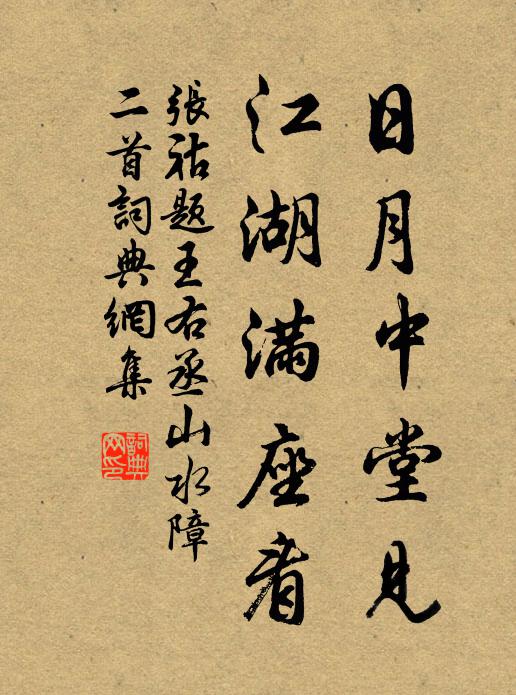 日月中堂見
江湖满座看
張祜題王右丞山水障
二首詞典網集
詞典
网印